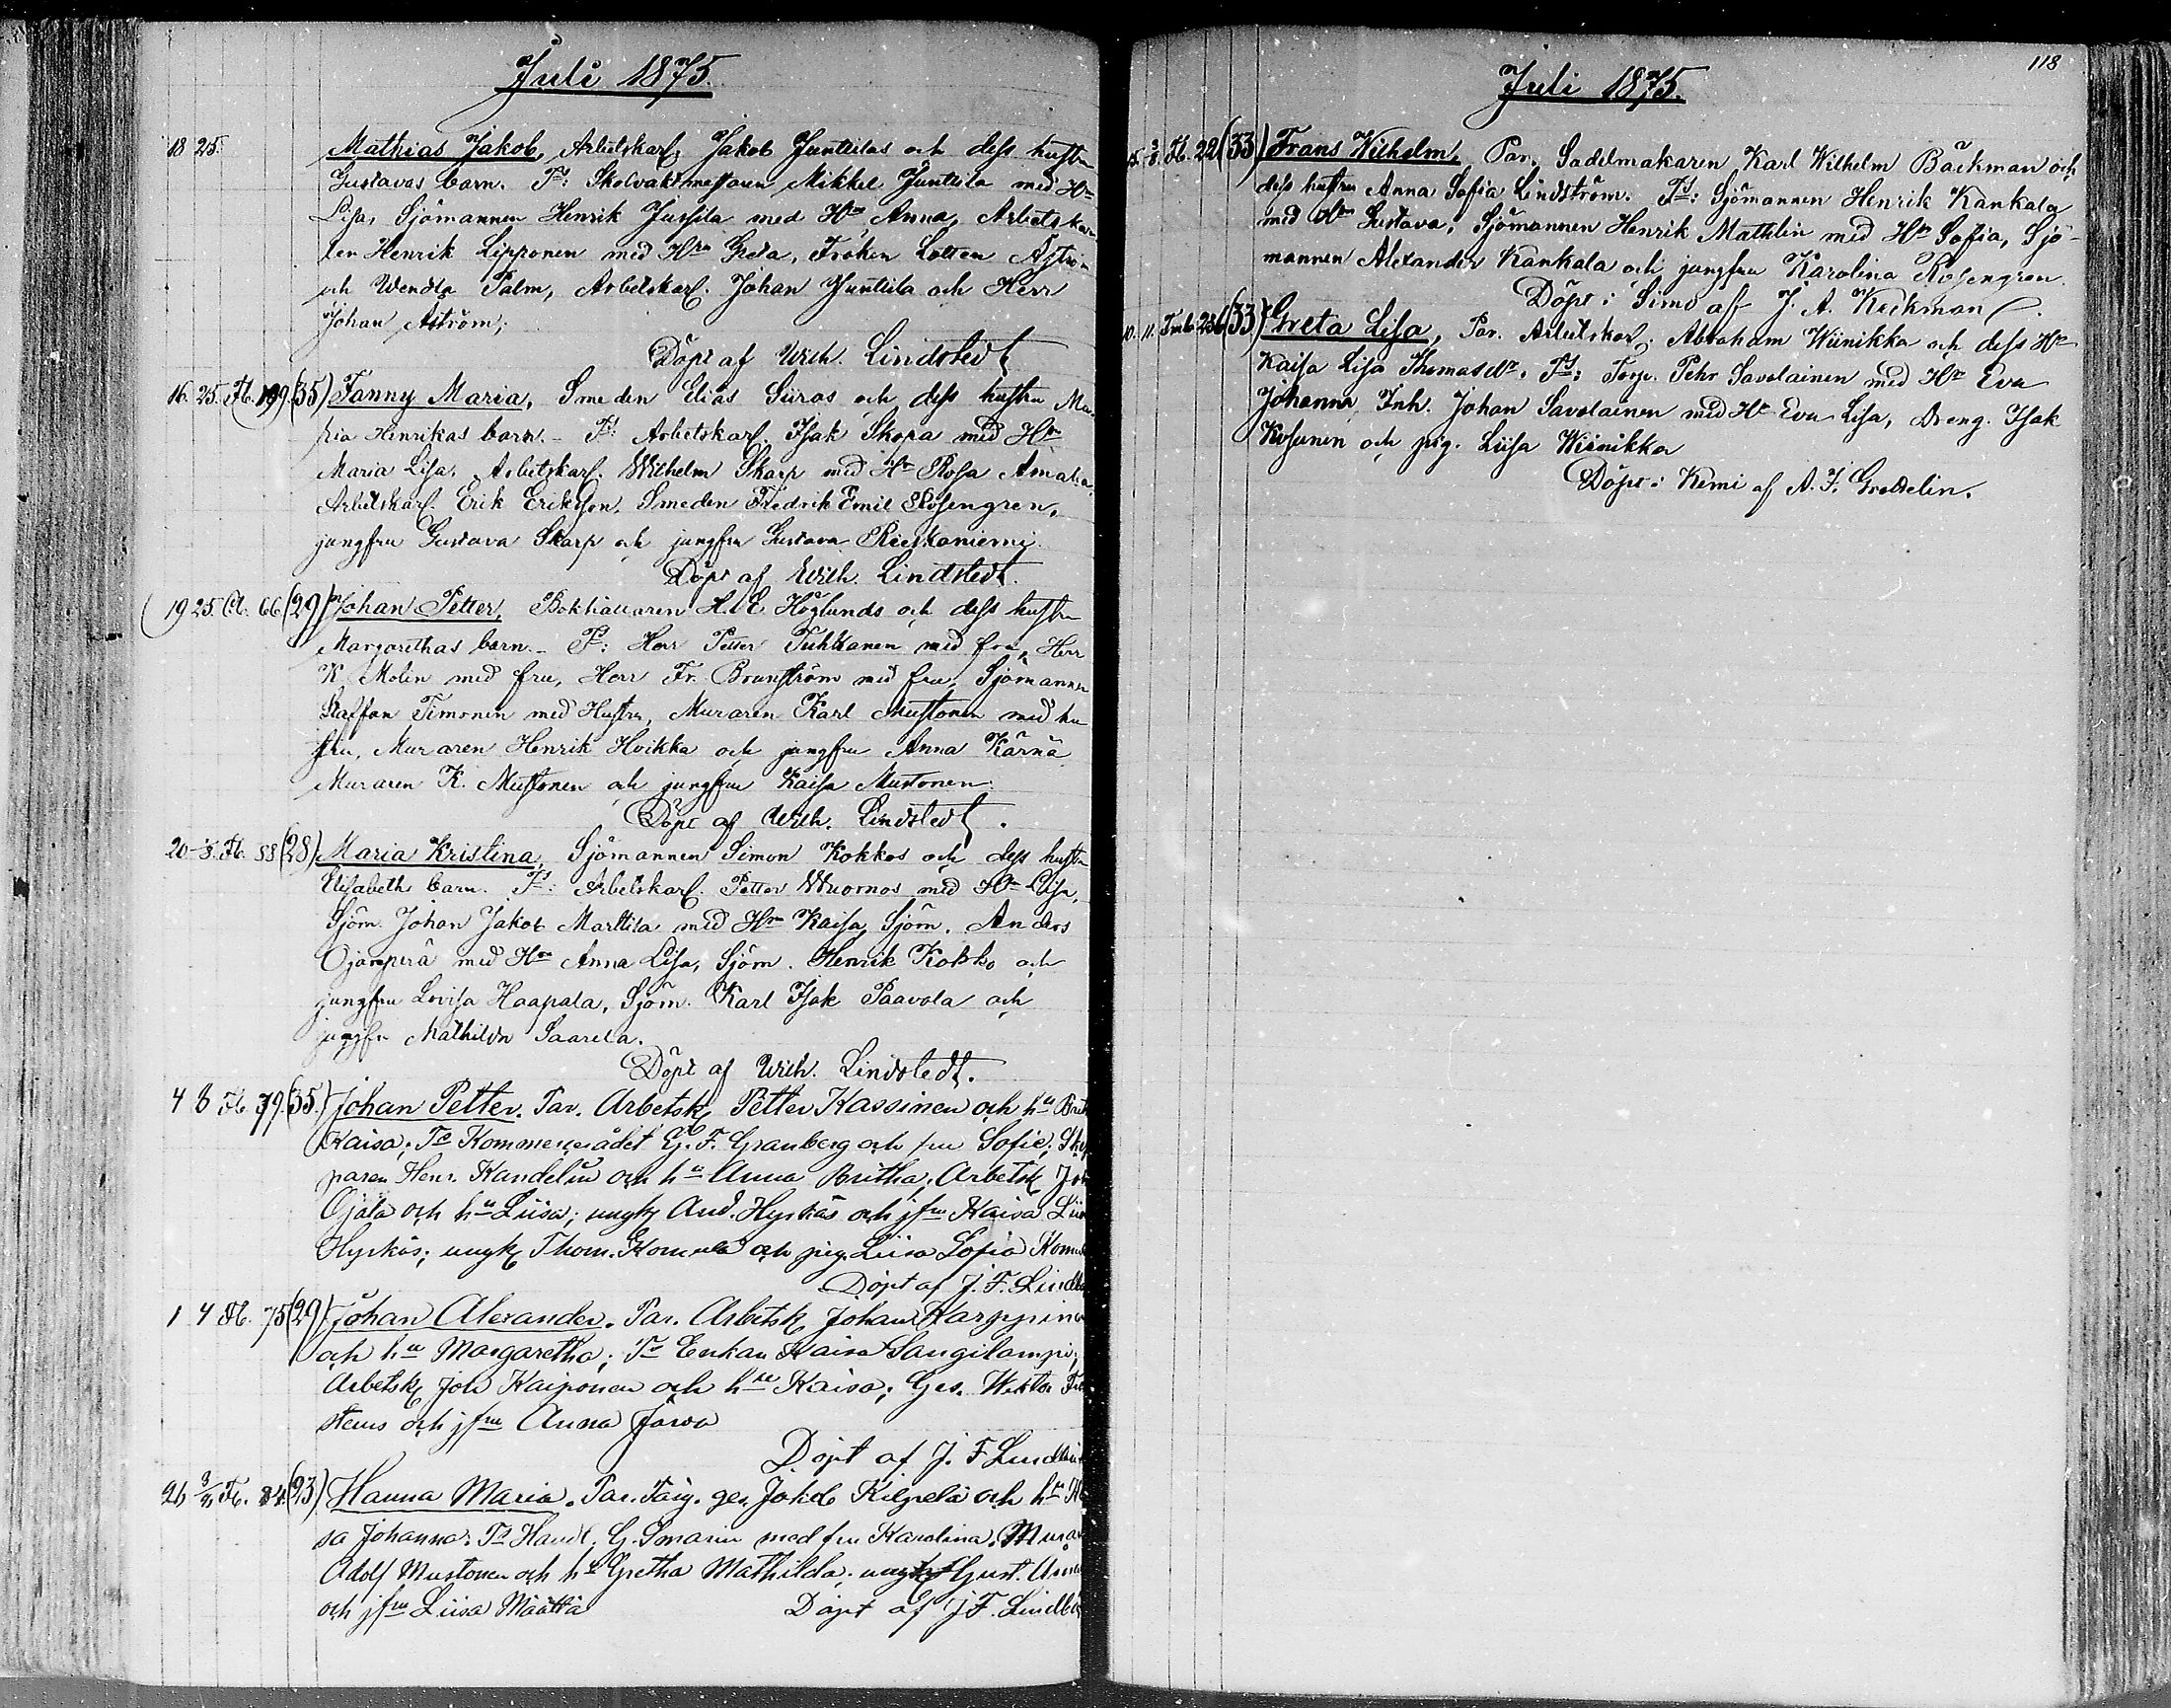 Juli 1875.
18 25. Mathias Jakob, Arbetskarl. Jakob Junttilas och dess hustru
Gustavas barn. Ts: Skolvaktmestaren Mikkel Junttila med Hu
Lisa, Sjömannen Henrik Jussila med Hru Anna, Arbetskar
len Henrik Lipponen med Hru Greta, Fröken Lotten Åström
och Wendla Palm, Arbetskarl. Johan Junttila och Herr
Johan Åström;
Döpt af Wilh. Lindstedt
16. 25. Fb. 199. (35) Fanny Maria, Smeden Elias Siiras och dess hustru Ma-
ria Henrikas barn. - Ts: Arbetskarl. Isak Skopa med Hru
Maria Lisa. Arbetskarl. Wilhelm Skarp med Hu Rosa Amalia.
Arbetskarl. Erik Eriksson. Smeden Fredrik Emil Rosengren,
jungfru Gustava Skarp och jungfru Gustava Rieskaniemi
Döpt af Wilh. Lindstedt.
19 25. Fb. 66 (29) Johan Petter, Bokhållaren H. E. Höglunds och dess hustru
Margarethas barn. - Ts: Herr Petter Tuhkanen med fru, Herr
K. Molin med fru, Herr Fr. Brunström med fru, Sjömannen
Staffan Timonen med Hustru, Muraren Karl Mustonen med hu
stru, Muraren Henrik Hoikka och jungfru Anna Kärnä
Muraren K. Mustonen och jungfru Kaisa Mustonen.
Döpt af Wilh. Lindstedt.
20 - 8. Fb. 58 (28) Maria Kristina, Sjömannen Simon Kokkos och dess hustru
Elisabeths barn. Ts: Arbetskarl. Petter Wuornos med Hu Lisa,
Sjöm. Johan Jakob Marttila med Hru Kaisa, Sjöm. Anders
Ojanperä med Hru Anna Lisa, Sjöm. Henrik Kokko och
jungfru Lovisa Haapala, Sjöm. Karl Isak Paavola och
jungfru Mathilda Saarela.
Döpt af Wilh. Lindstedt.
4 8 Fb. 79. (35.) Johan Petter. Par. Arbetsk. Petter Kassinen och hu Brit
Kaisa; Ts Kommerserådet G. F. Granberg och fru Sofie; Skep
paren Henr. Kandelin och hu Anna Britha; Arbetsk. Joh
Ojala och hu Liisa; ungk. And. Hyrkäs och jfru Kaisa Liis
Hyrkäs; ungk. Thom. Komula och pig. Liisa Sofia Komu
Döpt af J. F. Lindb
1 4 Fb. 75 (29) Johan Alexander. Par. Arbetsk. Johan Karppinen
och hu Margaretha; Ts Enkan Kaisa Sangilampi;
Arbetsk. Joh Kaiponen och hu Kaisa; Ges. Wiktor
stens och jfru Anna Järvo
Döpt af J. F. Lindb
26 3/8 Fb. 84. (23) Hanna Maria. Par. Färg. ges. Jakob Kilpelä och hu
sa Johanna. Ts Handl. G. Smarin med fru Karolina; Murar
Adolf Mustonen och hu Gretha Mathilda; ungk. Gust.
och jfru Liisa Määttä Döpt af J. F. Lindb
118
Juli 1875.
25. 3/8. Fb. 22 (33) Frans Wilhelm, Par. Sadelmakaren Karl Wilhelm Bäckman och
dess hustru Anna Sofia Lindström. Ts: Sjömannen Henrik Kankala
med Hru Gustava, Sjömannen Henrik Mathlin med Hu Sofia, Sjö-
mannen Alexander Kankala och jungfru Karolina Rosengren.
Döpt i Simo af J. A. Keckman.
10. 11. Fmb. 256 (33) Greta Lisa, Par. Arbetskarl. Abraham Wiinikka och dess Hu
Kaisa Lisa Thomasdr. Ts: Torp. Pehr Savolainen med Hu Eva
Johanna, Inh. Johan Savolainen med Hu Eva Lisa, Dreng. Isak
Kosunen och pig. Liisa Wiinikka
Döpt i Kemi af A. F. Grothelin.